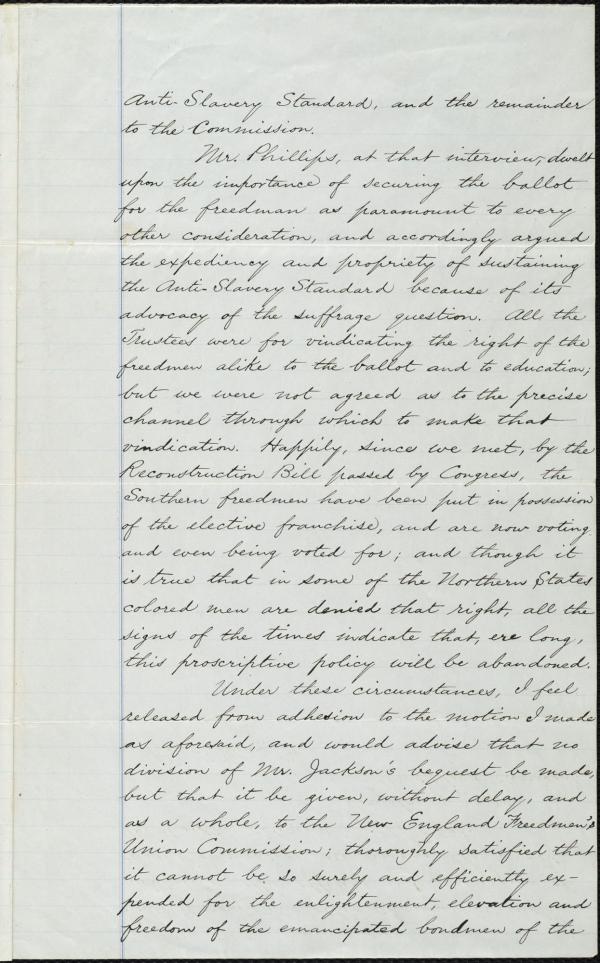 Anti-Slavery Standard, and the remainder
to the Commission.
Mr. Phillips, at that interview, dwelt
upon the importance of securing the ballot
for the freedman as paramount to every
other consideration, and accordingly argued
the expediency and propriety of sustaining
the Anti-Slavery Standard because of its
advocacy of the suffrage question. All the
Trustees were for vindicating the right of the
freedmen alike to the ballot and to education;
but we were not agreed as to the precise
channel through which to make that
vindication. Happily, since we met, by the
Reconstruction Bill passed by Congress, the
Southern freedmen have been put in possession
of the elective franchise, and are now voting
and even being voted for; and though it
is true that in some of the Northern States
colored men are denied that right, all the
signs of the times indicate that, ere long,
this proscriptive policy will be abandoned.
Under these circumstances, I feel
released from adhesion to the motion I made
as aforesaid, and would advise that no
division of Mr. Jackson's bequest be made,
but that it be given, without delay, and
as a whole, to the New England Freedmen's
Union Commission; thoroughly satisfied that
it cannot be so surely and efficiently ex-
pended for the enlightenment, elevation and
freedom of the emancipated bondmen of the